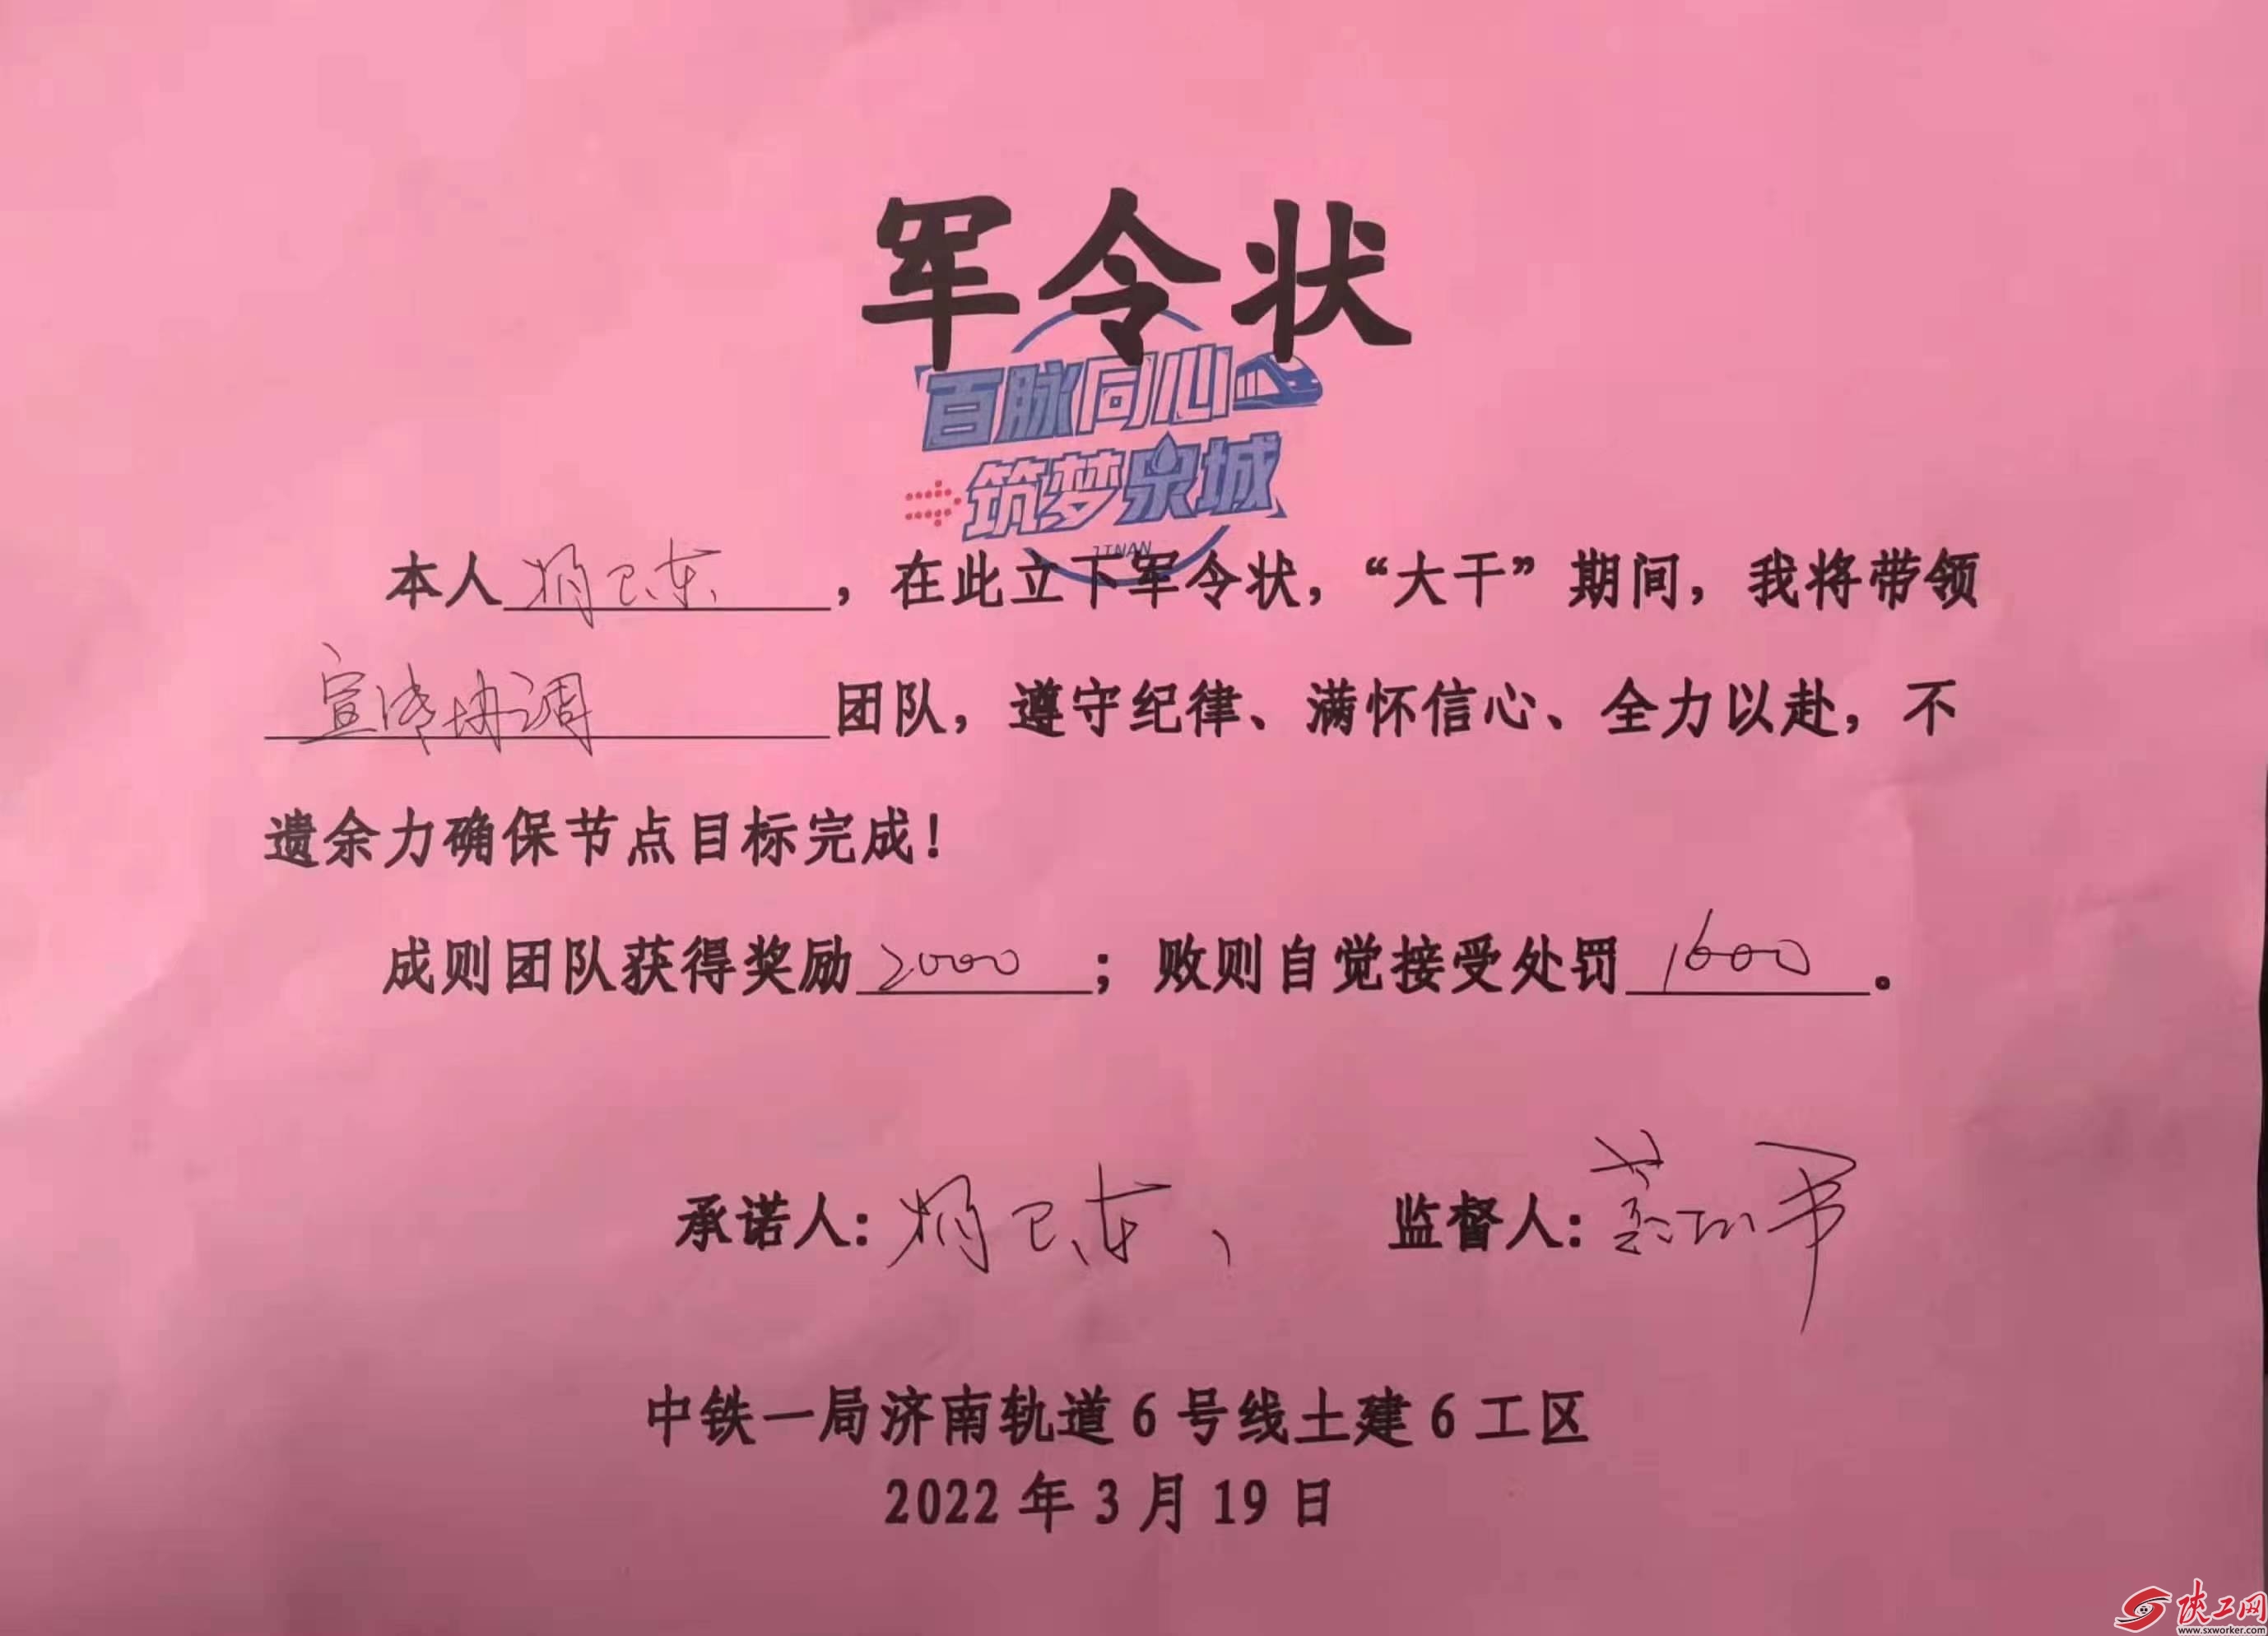 军令状
百脉同心
筑梦泉城
JINAN
本人杨卫东，在此立下军令状，“大干”期间，我将带领
宣传协调团队，遵守纪律、满怀信心、全力以赴，不
遗余力确保节点目标完成！
成则团队获得奖励2000；败则自觉接受处罚1600。
承诺人：杨卫东 监督人：
中铁一局济南轨道6号线土建6工区
2022年3月19日
陕工网
www.sxworker.com